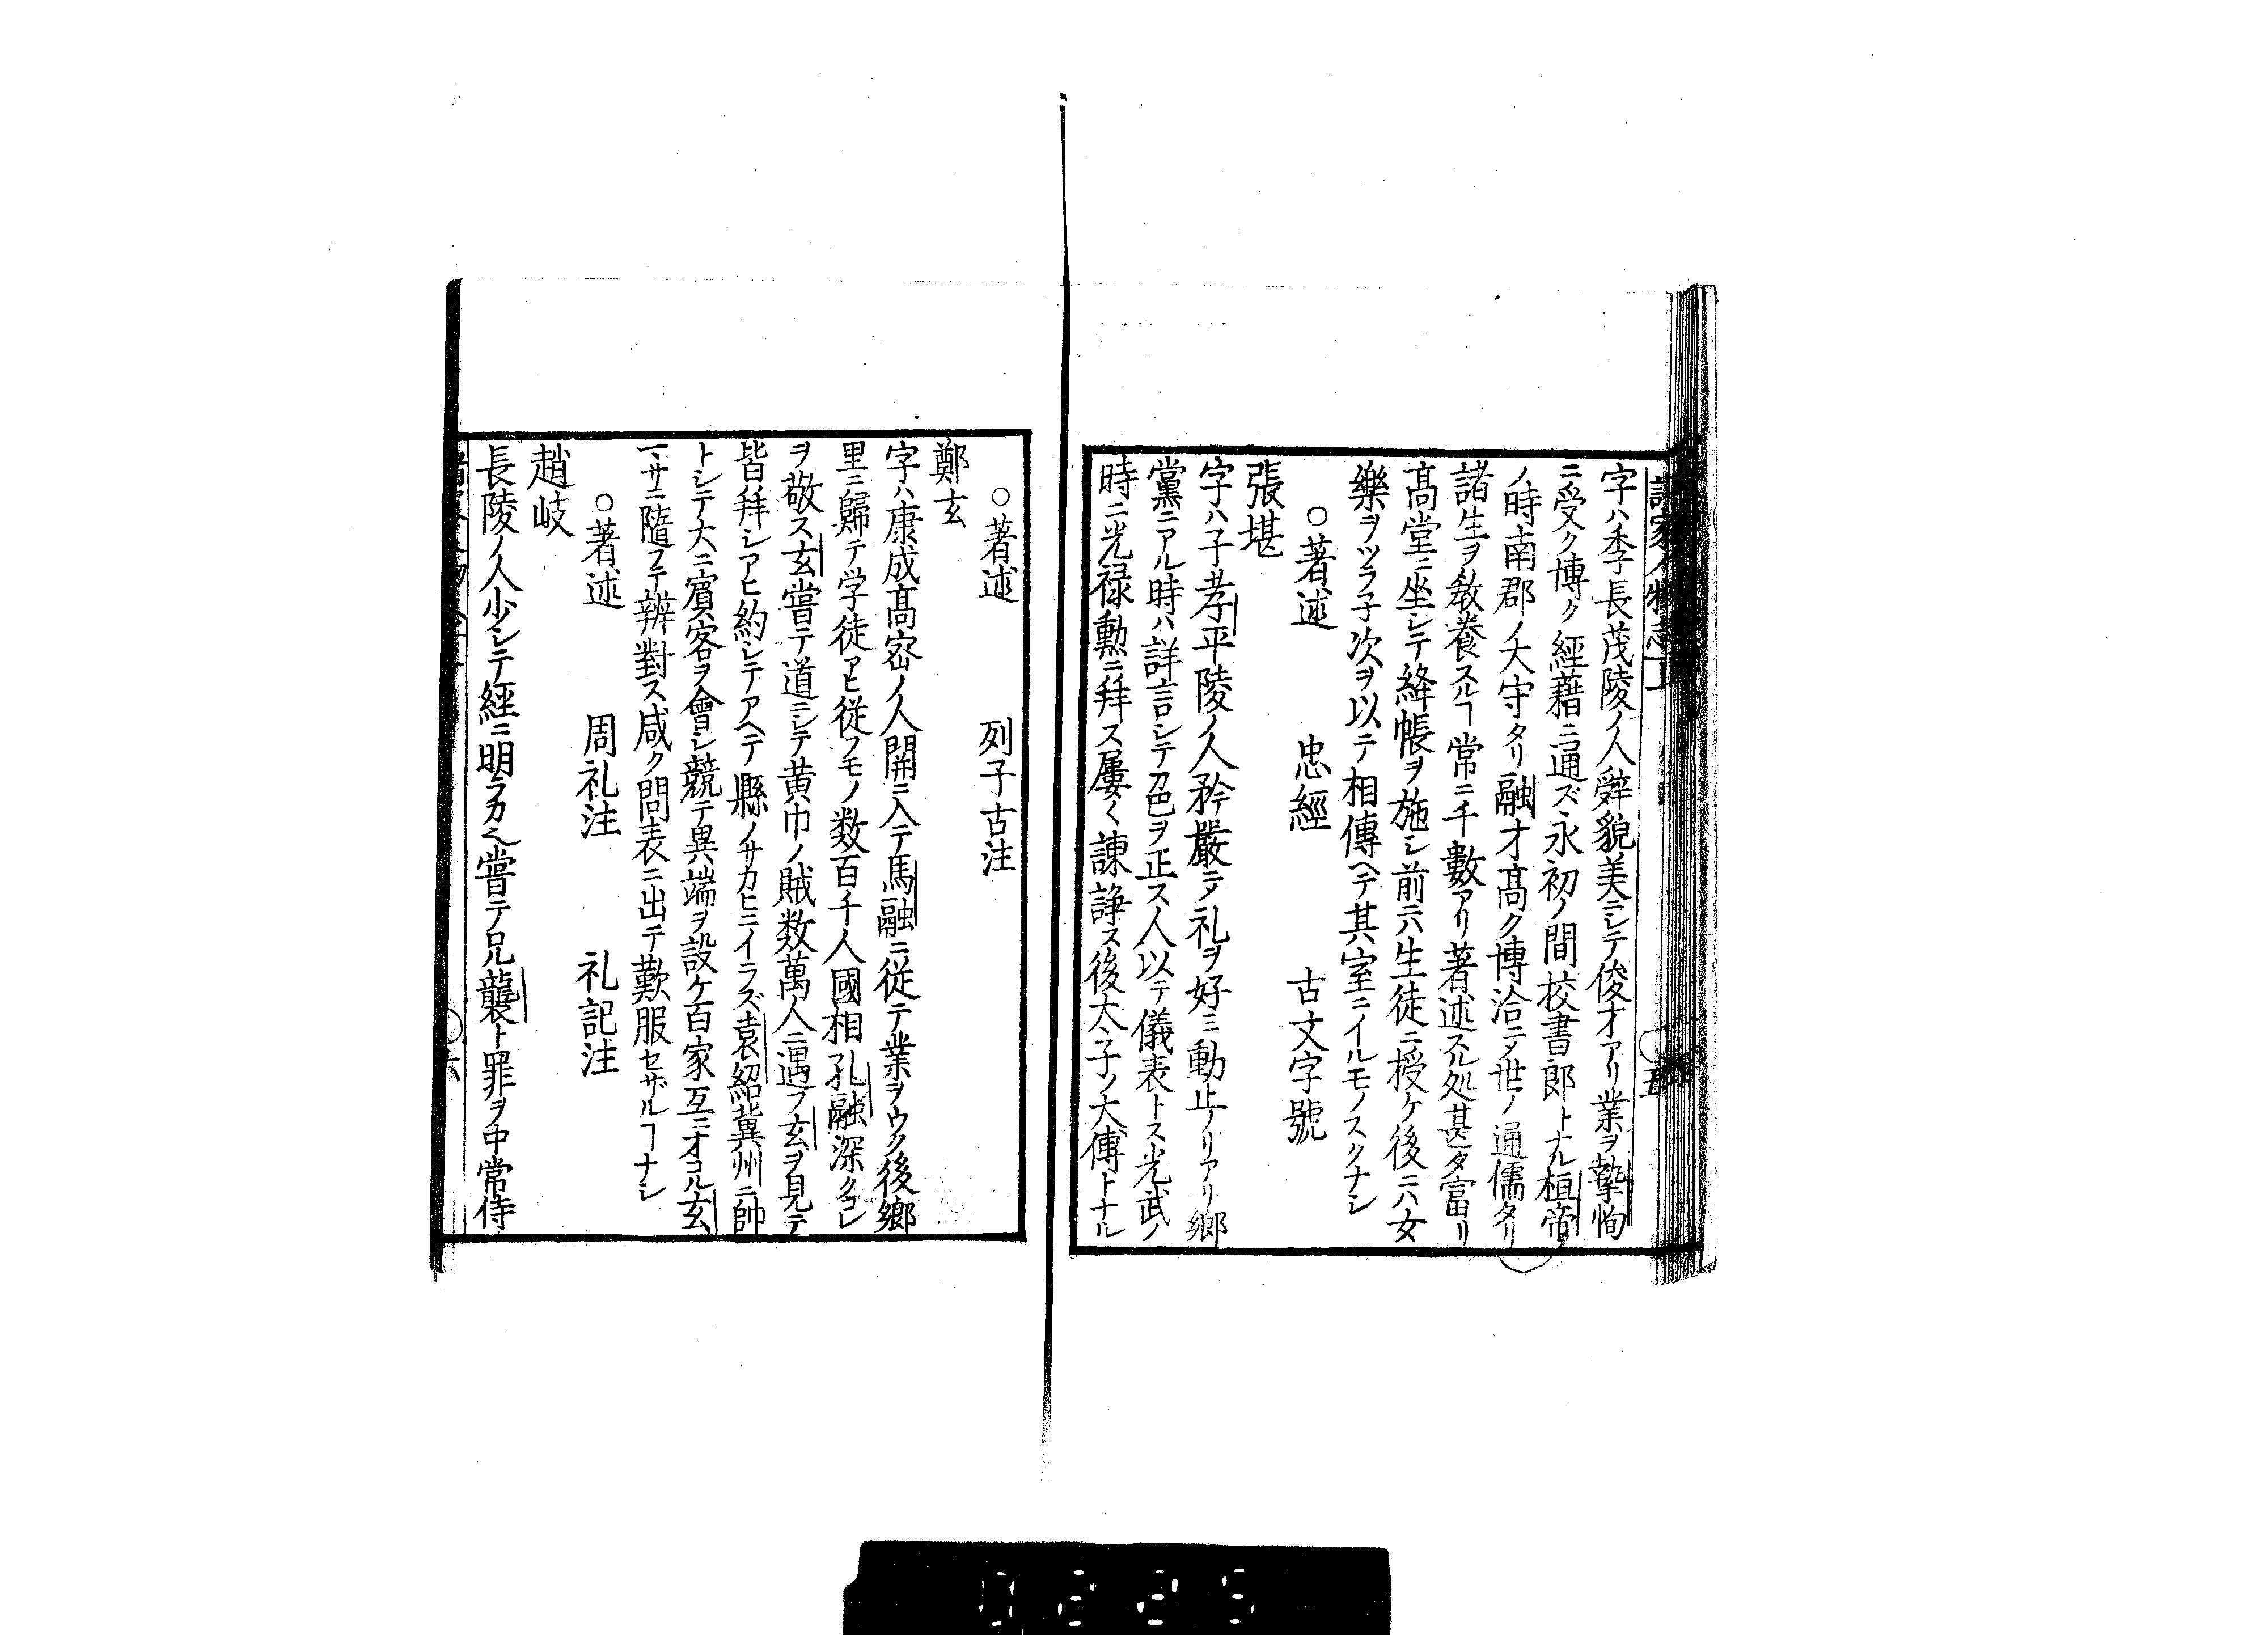 諸家人物志上
字ハ季長茂陵ノ人辭貌美ニシテ俊才アリ業ヲ摯恂
ニ受ク博ク經藉ニ通ズ永初ノ間校書郎トナル桓帝
ノ時南郡ノ大守タリ融才髙ク博洽ニメ世ノ通儒タリ
諸生ヲ敎養スルヿ常ニ千數アリ著述スル処甚タ富リ
髙堂ニ坐シテ絳帳ヲ施シ前ニハ生徒ニ授ケ後ニハ女
樂ヲツラ子次ヲ以テ相傳ヘテ其室ニイルモノスクナシ
○著述 忠經 古文字號
張堪
字ハ子孝平陵ノ人矜嚴ニメ礼ヲ好ミ動止ノリアリ郷
黨ニアル時ハ詳言シテ刀色ヲ正ス人以テ儀表トス光武ノ
時ニ光禄勲ニ拜ス屢〱諌諍ス後大子ノ大傅トナル
○著述 列子古注
鄭玄
字ハ康成髙宻ノ人開ニ入テ馬融ニ従テ業ヲウク後郷
里ニ歸テ学徒アヒ従フモノ数百千人國相孔融深クコレ
ヲ敬ス玄嘗テ道ニシテ黄巾ノ賊数萬人ニ遇フ玄ヲ見テ
皆拜シアヒ約シテアヘテ縣ノサカヒニイラズ袁紹冀州ニ帥
トシテ大ニ賓客ヲ會シ競テ異端ヲ設ケ百家互ニオコル玄
一〻サニ隨フテ辨對ス咸ク問表ニ出テ歎服セザルヿナシ
○著述 周礼注 礼記注
趙岐
長陵ノ人少シテ經ニ明ラカ也嘗テ兄襲ト罪ヲ中常侍
六